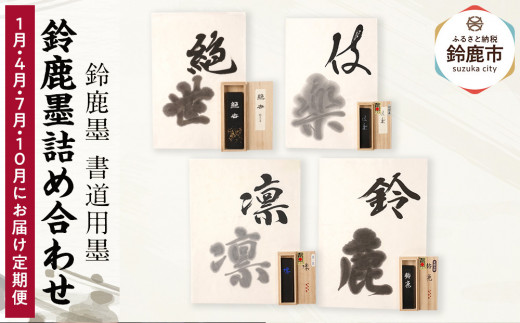 ふるさと納税
鈴鹿市
suzuka city
鈴鹿墨 書道用墨
鈴鹿墨詰め合わせ
1月・4月・7月・10月にお届け定期便
絶世
絶世
伎楽
凛
凛
鈴鹿
鈴鹿